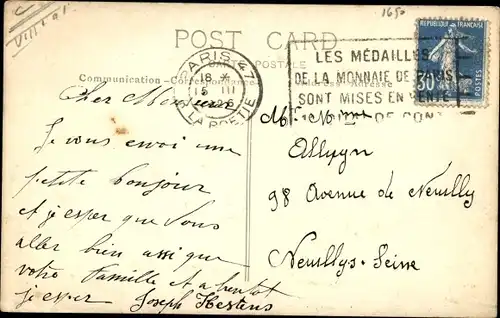 VIII e 91
1650
POST CARD
CARTE POSTALE
Communication - Correspondance
Adresse - Address
PARIS 47
18 *
15 III
26
R. LA BOETIE
LES MÉDAILLES
DE LA MONNAIE DE PARIS
SONT MISES EN VENTE
DE CON
REPUBLIQUE FRANÇAISE
POSTES
30
Cher Monsieur
Je vous envoi une
petite bonjour
et j'esper que Vous
aller bien assi que
votre Famille et a bientot
j'esper Joseph Hestens
Mr Mme
Alluyn
98 Avenue de Neuilly
Neuilly s. Seine